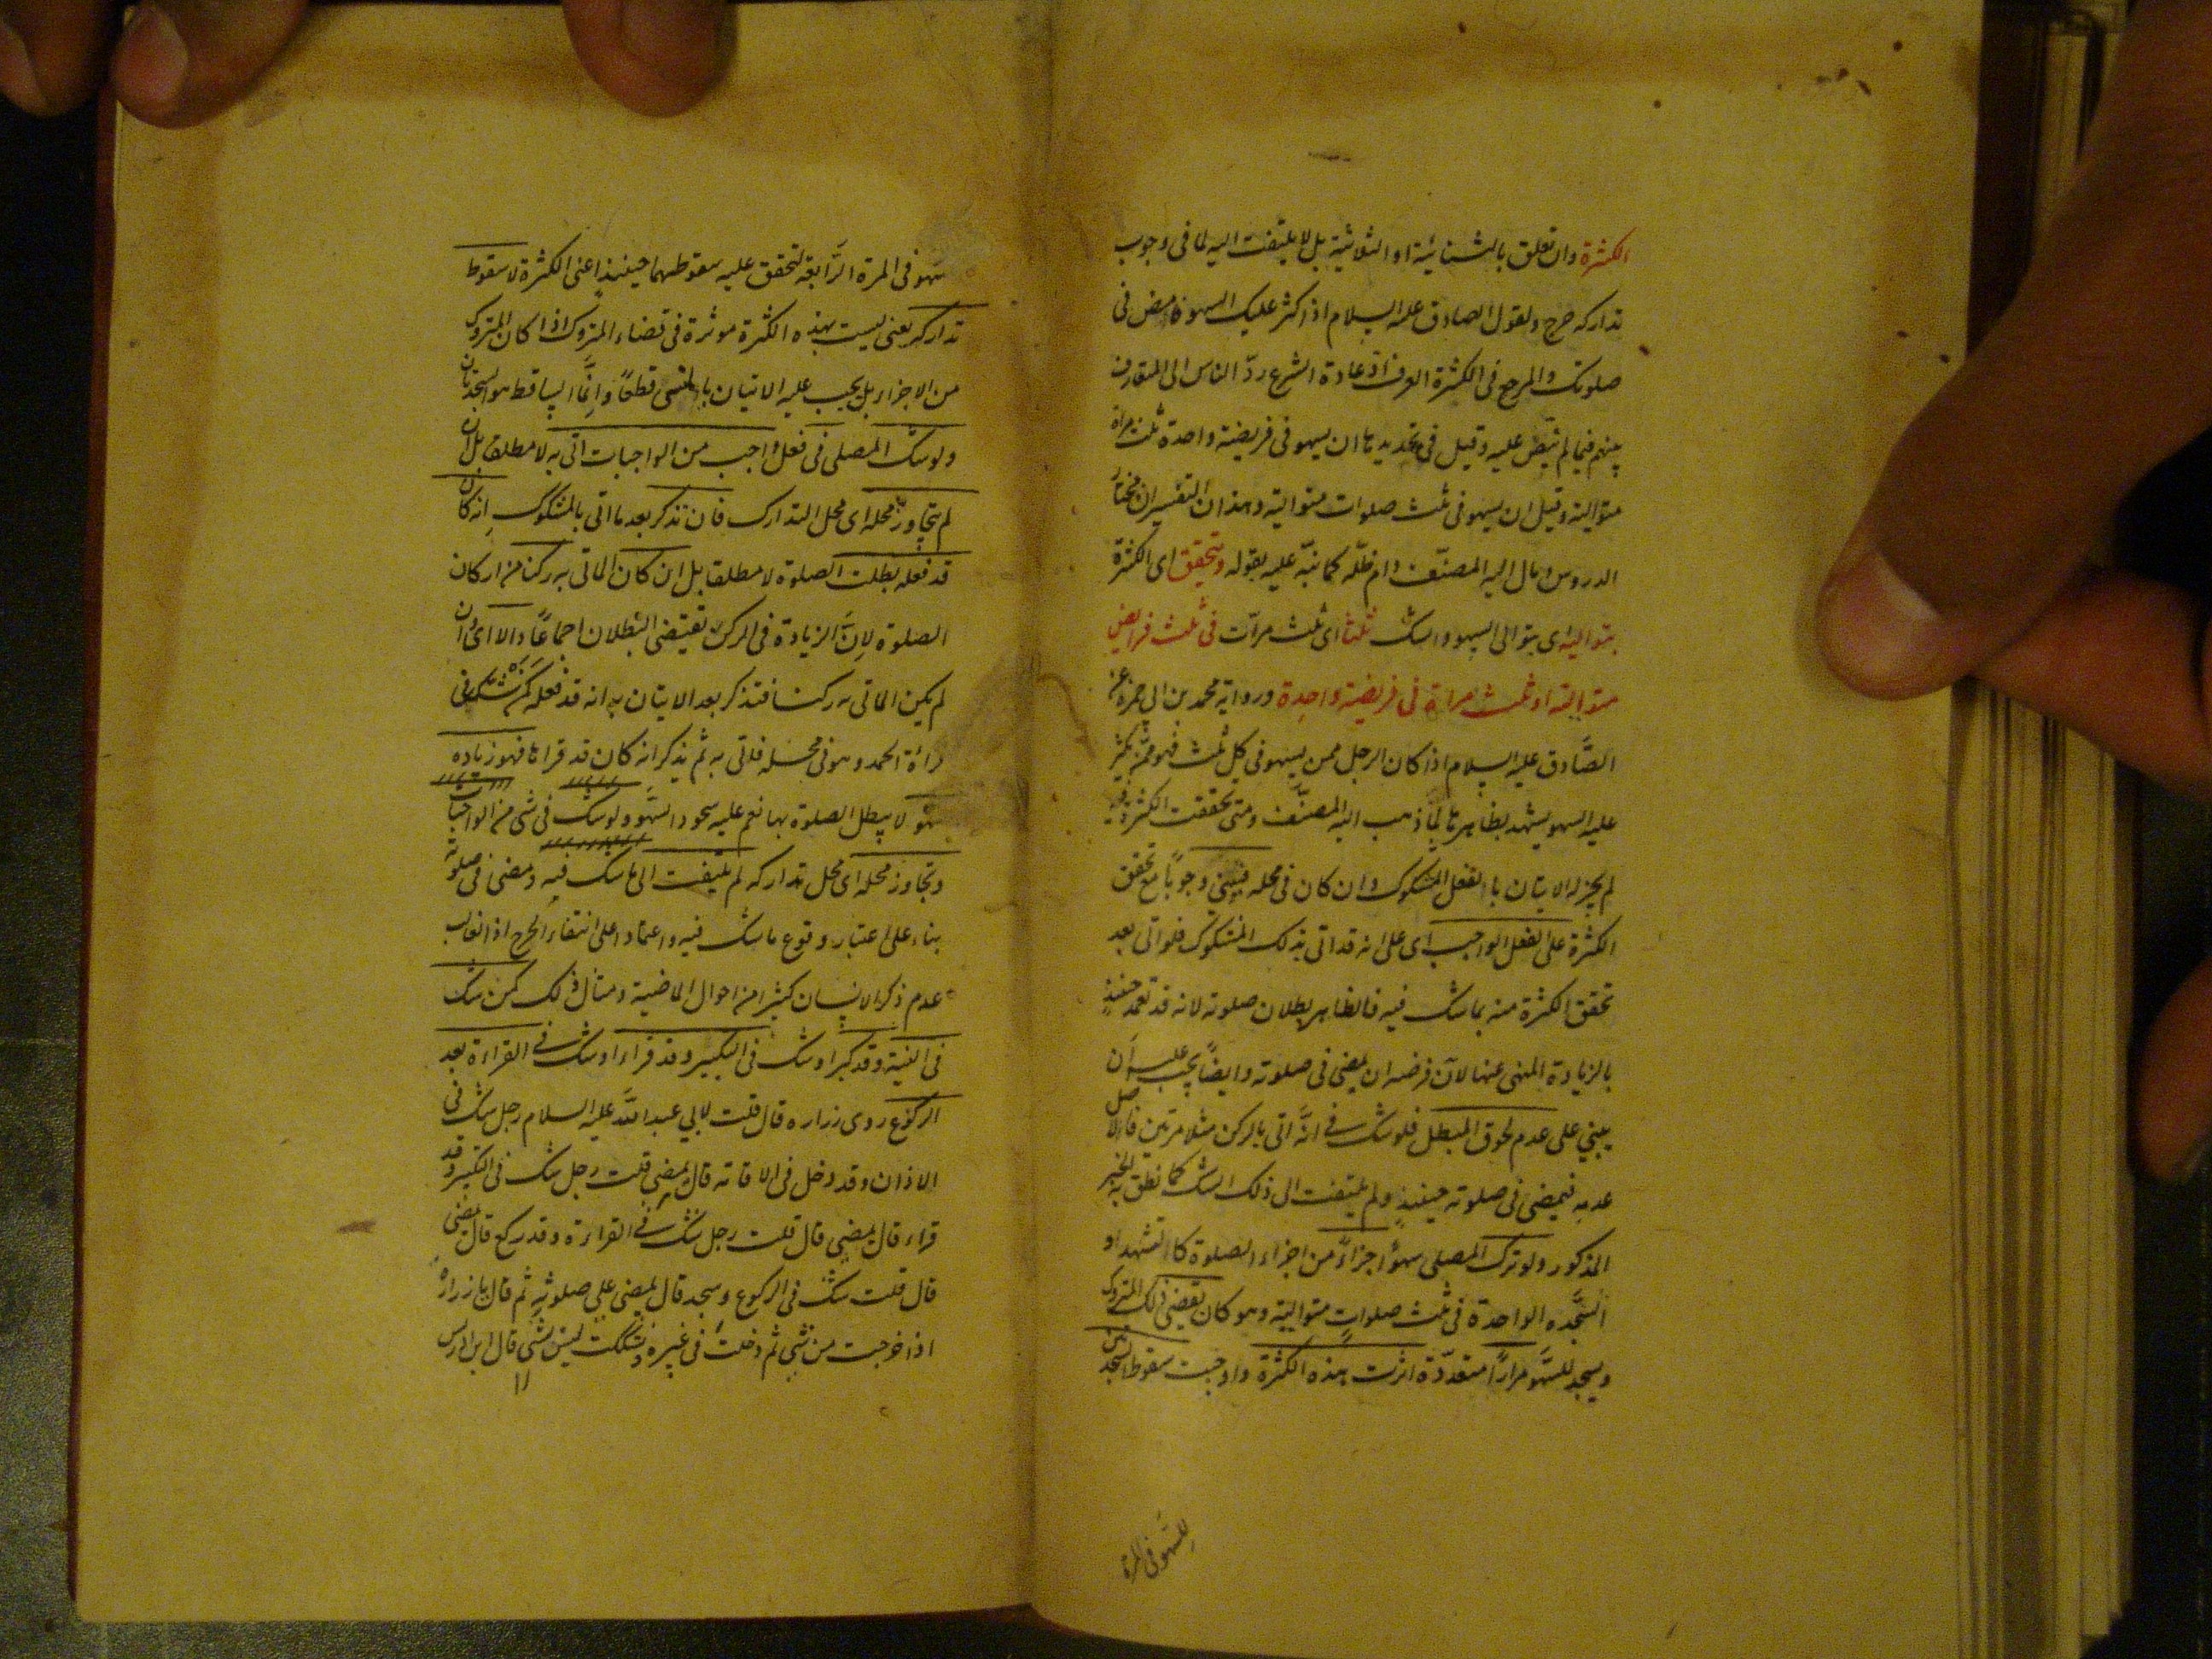 الكثرة وان تعلق بالثنائية او الثلاثية بل لا يلتفت اليه لما فى وجوب
تداركه حرج ولقول الصادق عليه السلام اذا كثر عليك السهو فامض فى
صلوتك والمرجع فى الكثرة العرف اذ عادة الشرع ردّ الناس الى المتعارف
بينهم فيما لم ينصّ عليه وقيل فى تحديدها ان يسهو فى فريضة واحدة ثلث مراة
متوالية وقيل ان يسهو فى ثلث صلوات متوالية وهذان التفسيران مختار
الدروس ومال اليه المصنّف دام ظلّه كما نبّه عليه بقوله ويتحقق اى الكثرة
بتواليه اى بتوالى السهو والشك ثلثا اى ثلث مرّات فى ثلث فرايض
متوالية او ثلث مراة فى فريضة واحدة ورواية محمد بن ابى حمزة عن
الصَّادق عليه السلام اذا كان الرجل ممن يسهو فى كل ثلث فهو ممّن يكثر
عليه السهو يشهد بظاهرها لما ذهب اليه المصنّف ومتى تحققت الكثرة
لم يجز له الاتيان بالفعل المشكوك وان كان فى محله فيبنى وجوباً مع تحقق
الكثرة على الفعل الواجب اى على انه قد اتى بذلك المشكوك فلو اتى بعد
تحقق الكثرة منه بما شك فيه فالظاهر بطلان صلوته لانه قد تعمد حينئذ
بالزيادة المنهى عنها لانّ فرضه ان يمضى فى صلوته وايضاً يجب عليه ان
يبني على عدم لحوق المبطل فلو شك في انّه اتى بالركن مثلا مرتين فالاصل
عدمه فيمضى فى صلوته حينئذٍ ولم يلتفت الى ذلك الشك كما نطق به الخبر
المذكور ولو ترك المصلى سهوًا جزاءً من اجزاء الصلوة كالتشهد او
السَّجدة الواحدة فى ثلث صلواتٍ متوالية وهو كان يقضى ذلك المتروك
ويسجد للسَّهو مرارًا متعدّدة اثرت هذه الكثرة واوجبت سقوط السجدتين
للسَّهو فى المرة
سهو فى المرة الرَّابعة لتحقق عليه سقوطهما حينئذٍ اعنى الكثرة لا سقوط
تداركه يعنى ليست هذه الكثرة موثرة فى قضاء المتروك اذا كان المتروك
من الاجزاء بل يجب عليه الاتيان بالمنسى قطعًا وانّما الساقط هو السجدتان
ولو شك المصلى فى فعل واجب من الواجبات اتى به لا مطلقا بل ان
لم يتجاوز محله اى محل التدارك فان تذكر بعد ما اتى بالمشكوك انه كان
قد فعله بطلت الصلوة لا مطلقا بل ان كان الماتى به ركنا من اركان
الصلوة لانّ الزيادة فى الركن تقتضى البطلان اجماعًا والا اى وان
لم يكن الماتى به ركنا فتذكر بعد الاتيان به انه قد فعله كمن شك فى
قراءة الحمد وهو فى محله فاتى به ثم يذكر انه كان قد قراها فهو زيادة
سهو لا يبطل الصلوة بها نعم عليه سجود السَّهو ولو شك فى شئ من الواجبات
وتجاوز محله اى محل تداركه لم يلتفت الى ما شك فيه ومضى فى صلوته
بناء على اعتبار وقوع ما شك فيه واعتمادا على انتفاء الحرج اذ الغالب
عدم ذكر الانسان كثيرا من احوال الماضية ومثال ذلك كمن شك
فى النية وقد كبر او شك فى التكبير وقد قراء او شك في القراءة بعد
الركوع روى زراره قال قلت لابي عبد اللّه عليه السلام رجل شك فى
الاذان وقد دخل فى الاقامة قال يمضى قلت رجل شك فى التكبير وقد
قراء قال يمضى قال قلت رجل شك في القراءة وقد ركع قال يمضى
قال قلت شك فى الركوع وسجد قال يمضى على صلوته ثم قال يا زراره
اذا خرجت من شئ ثم دخلت فى غيره فشككت ليس بشئ قال ابن ادريس